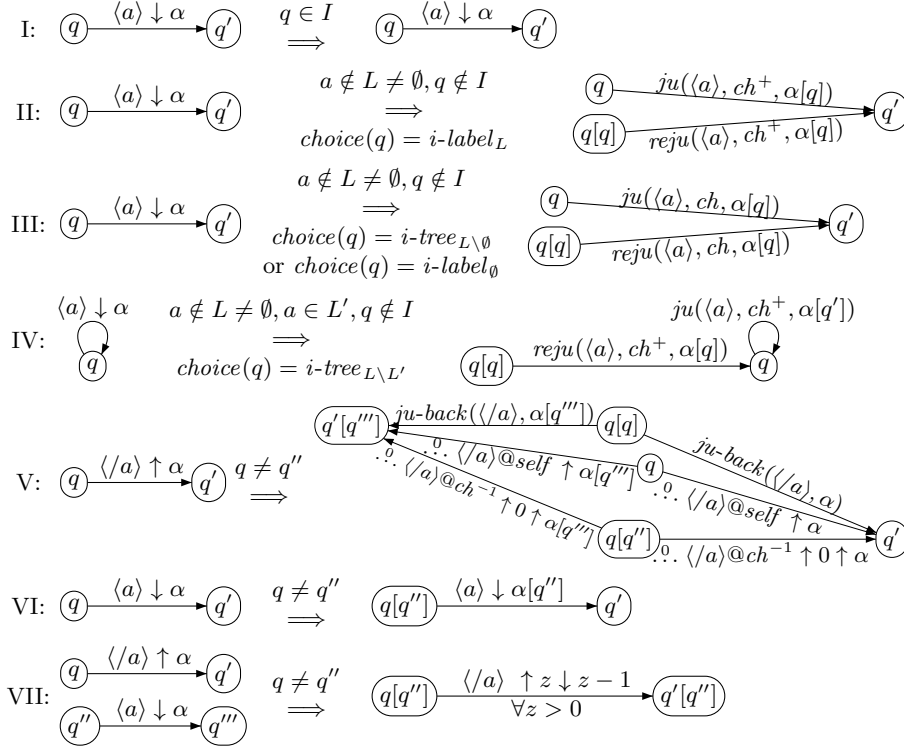 I: q ⟨a⟩ ↓ α q′ q ∈ I ⟹ q ⟨a⟩ ↓ α q′
II: q ⟨a⟩ ↓ α q′ a ∉ L ≠ ∅, q ∉ I ⟹ choice(q) = i-label_L q ju(⟨a⟩, ch⁺, α[q]) q[q] reju(⟨a⟩, ch⁺, α[q]) q′
III: q ⟨a⟩ ↓ α q′ a ∉ L ≠ ∅, q ∉ I ⟹ choice(q) = i-tree_{L\∅} or choice(q) = i-label_∅ q ju(⟨a⟩, ch, α[q]) q[q] reju(⟨a⟩, ch, α[q]) q′
IV: ⟨a⟩ ↓ α q a ∉ L ≠ ∅, a ∈ L′, q ∉ I ⟹ choice(q) = i-tree_{L\L′} q[q] reju(⟨a⟩, ch⁺, α[q]) q ju(⟨a⟩, ch⁺, α[q′])
V: q ⟨/a⟩ ↑ α q′ q ≠ q″ ⟹ q′[q‴] ju-back(⟨/a⟩, α[q‴]) q[q] ju-back(⟨/a⟩, α) .0. ⟨/a⟩@self ↑ α[q‴] q .0. ⟨/a⟩@self ↑ α .0. ⟨/a⟩@ch⁻¹ ↑ 0 ↑ α[q‴] q[q″] .0. ⟨/a⟩@ch⁻¹ ↑ 0 ↑ α q′
VI: q ⟨a⟩ ↓ α q′ q ≠ q″ ⟹ q[q″] ⟨a⟩ ↓ α[q″] q′
VII: q ⟨/a⟩ ↑ α q′ q″ ⟨a⟩ ↓ α q‴ q ≠ q″ ⟹ q[q″] ⟨/a⟩ ↑ z ↓ z − 1 ∀z > 0 q′[q″]